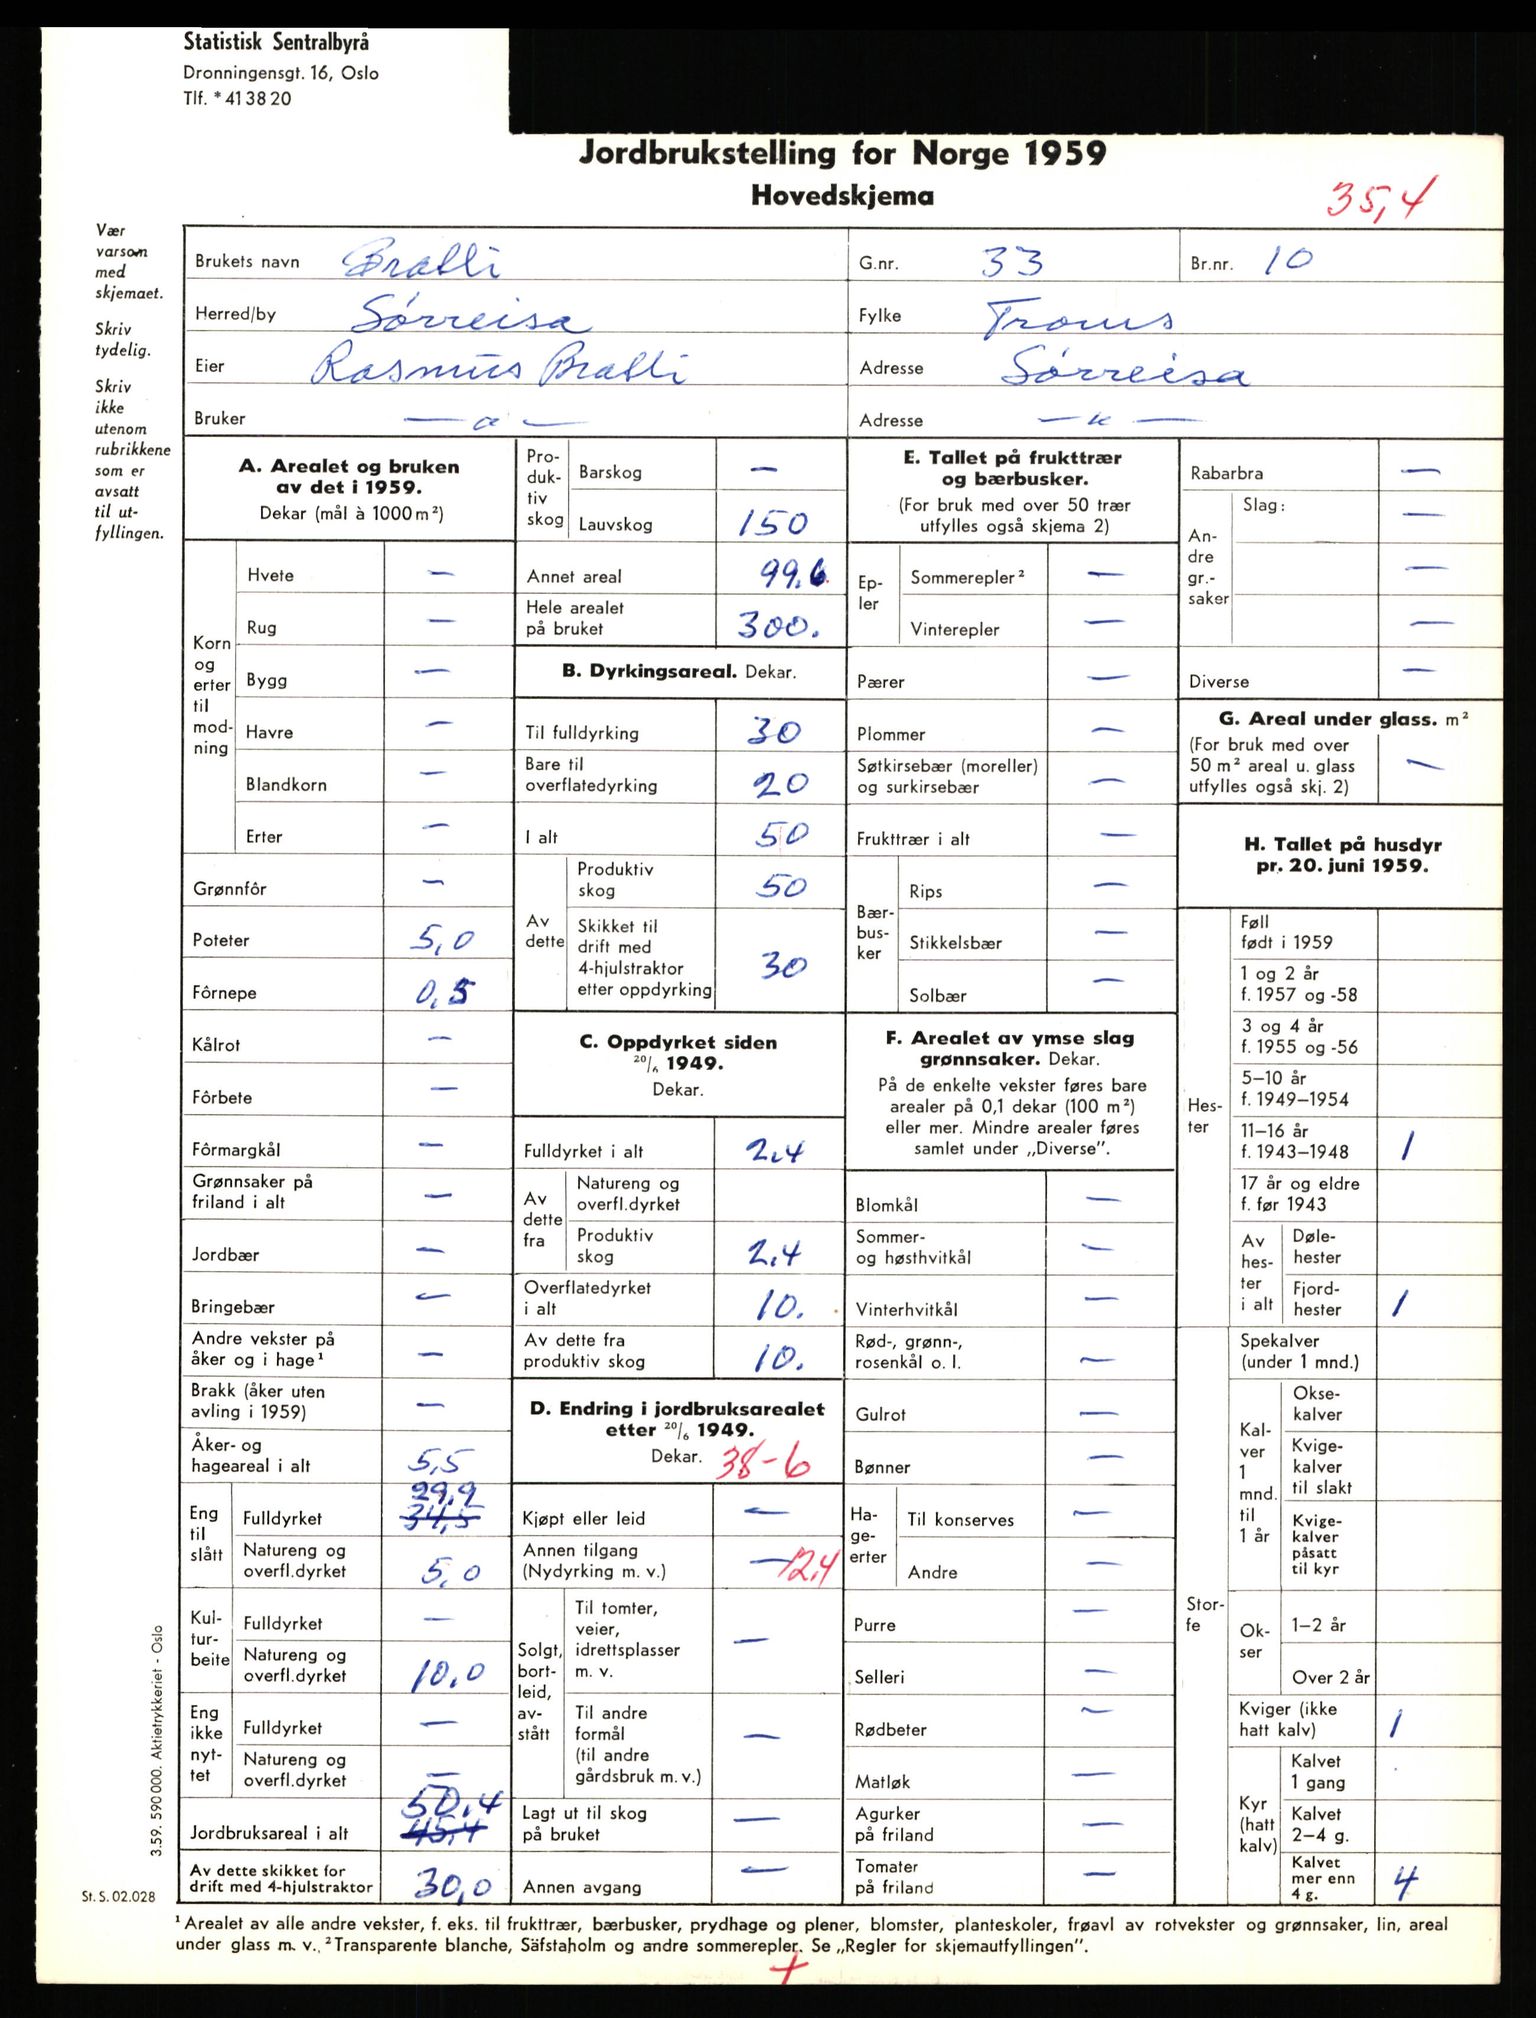 Statistisk Sentralbyrå
Dronningensgt. 16, Oslo
Tlf. * 41 38 20
Jordbrukstelling for Norge 1959
Hovedskjema
35,4
Vær
varsom
med
skjemaet.
Skriv
tydelig.
Skriv
ikke
utenom
rubrikkene
som er
avsatt
til ut-
fyllingen.
Brukets navn Bratli G.nr. 33 Br.nr. 10
Herred/by Sörreisa Fylke Troms
Eier Rasmus Bratli Adresse Sörreisa
Bruker — " — Adresse — " —
A. Arealet og bruken
av det i 1959.
Dekar (mål à 1000 m²)
Korn
og
erter
til
mod-
ning
Hvete —
Rug —
Bygg —
Havre —
Blandkorn —
Erter —
Grønnfôr —
Poteter 5,0
Fôrnepe 0,5
Kålrot —
Fôrbete —
Fôrmargkål —
Grønnsaker på
friland i alt —
Jordbær —
Bringebær —
Andre vekster på
åker og i hage¹ —
Brakk (åker uten
avling i 1959) —
Åker- og
hageareal i alt 5,5
Eng
til
slått
29,9
Fulldyrket 34,5
Natureng og
overfl.dyrket 5,0
Kul-
tur-
beite
Fulldyrket —
Natureng og
overfl.dyrket 10,0
Eng
ikke
nyt-
tet
Fulldyrket —
Natureng og
overfl.dyrket —
50,4
Jordbruksareal i alt 45,4
Av dette skikket for
drift med 4-hjulstraktor 30,0
Pro-
duk-
tiv
skog
Barskog —
Lauvskog 150
Annet areal 99.6
Hele arealet
på bruket 300.
B. Dyrkingsareal. Dekar.
Til fulldyrking 30
Bare til
overflatedyrking 20
I alt 50
Av
dette
Produktiv
skog 50
Skikket til
drift med
4-hjulstraktor
etter oppdyrking 30
C. Oppdyrket siden
20/6 1949.
Dekar.
Fulldyrket i alt 2,4
Av
dette
fra
Natureng og
overfl.dyrket
Produktiv
skog 2,4
Overflatedyrket
i alt 10.
Av dette fra
produktiv skog 10.
D. Endring i jordbruksarealet
etter 20/6 1949.
Dekar. 38-6
Kjøpt eller leid —
Annen tilgang
(Nydyrking m. v.) — 12,4
Solgt,
bort-
leid,
av-
stått
Til tomter,
veier,
idrettsplasser
m. v. —
Til andre
formål
(til andre
gårdsbruk m. v.) —
Lagt ut til skog
på bruket —
Annen avgang —
E. Tallet på frukttrær
og bærbusker.
(For bruk med over 50 trær
utfylles også skjema 2)
Ep-
ler
Sommerepler² —
Vinterepler —
Pærer —
Plommer —
Søtkirsebær (moreller)
og surkirsebær —
Frukttrær i alt —
Bær-
bus-
ker
Rips —
Stikkelsbær —
Solbær —
F. Arealet av ymse slag
grønnsaker. Dekar.
På de enkelte vekster føres bare
arealer på 0,1 dekar (100 m²)
eller mer. Mindre arealer føres
samlet under „Diverse”.
Blomkål —
Sommer-
og høsthvitkål —
Vinterhvitkål —
Rød-, grønn-,
rosenkål o. l. —
Gulrot —
Bønner —
Ha-
ge-
erter
Til konserves —
Andre —
Purre —
Selleri —
Rødbeter —
Matløk —
Agurker
på friland —
Tomater
på friland —
Rabarbra —
An-
dre
gr.-
saker
Slag: —
—
—
Diverse —
G. Areal under glass. m²
(For bruk med over
50 m² areal u. glass
utfylles også skj. 2) —
H. Tallet på husdyr
pr. 20. juni 1959.
Hes-
ter
Føll
født i 1959
1 og 2 år
f. 1957 og -58
3 og 4 år
f. 1955 og -56
5–10 år
f. 1949–1954
11–16 år
f. 1943–1948 1
17 år og eldre
f. før 1943
Av
hes-
ter
i alt
Døle-
hester
Fjord-
hester 1
Stor-
fe
Spekalver
(under 1 mnd.)
Kal-
ver
1
mnd.
til
1 år
Okse-
kalver
Kvige-
kalver
til slakt
Kvige-
kalver
påsatt
til kyr
Ok-
ser
1–2 år
Over 2 år
Kviger (ikke
hatt kalv) 1
Kyr
(hatt
kalv)
Kalvet
1 gang
Kalvet
2–4 g.
Kalvet
mer enn
4 g. 4
3.59. 590 000. Aktietrykkeriet - Oslo
St. S. 02.028
¹ Arealet av alle andre vekster, f. eks. til frukttrær, bærbusker, prydhage og plener, blomster, planteskoler, frøavl av rotvekster og grønnsaker, lin, areal
under glass m. v. ² Transparente blanche, Säfstaholm og andre sommerepler. Se „Regler for skjemautfyllingen”.
+